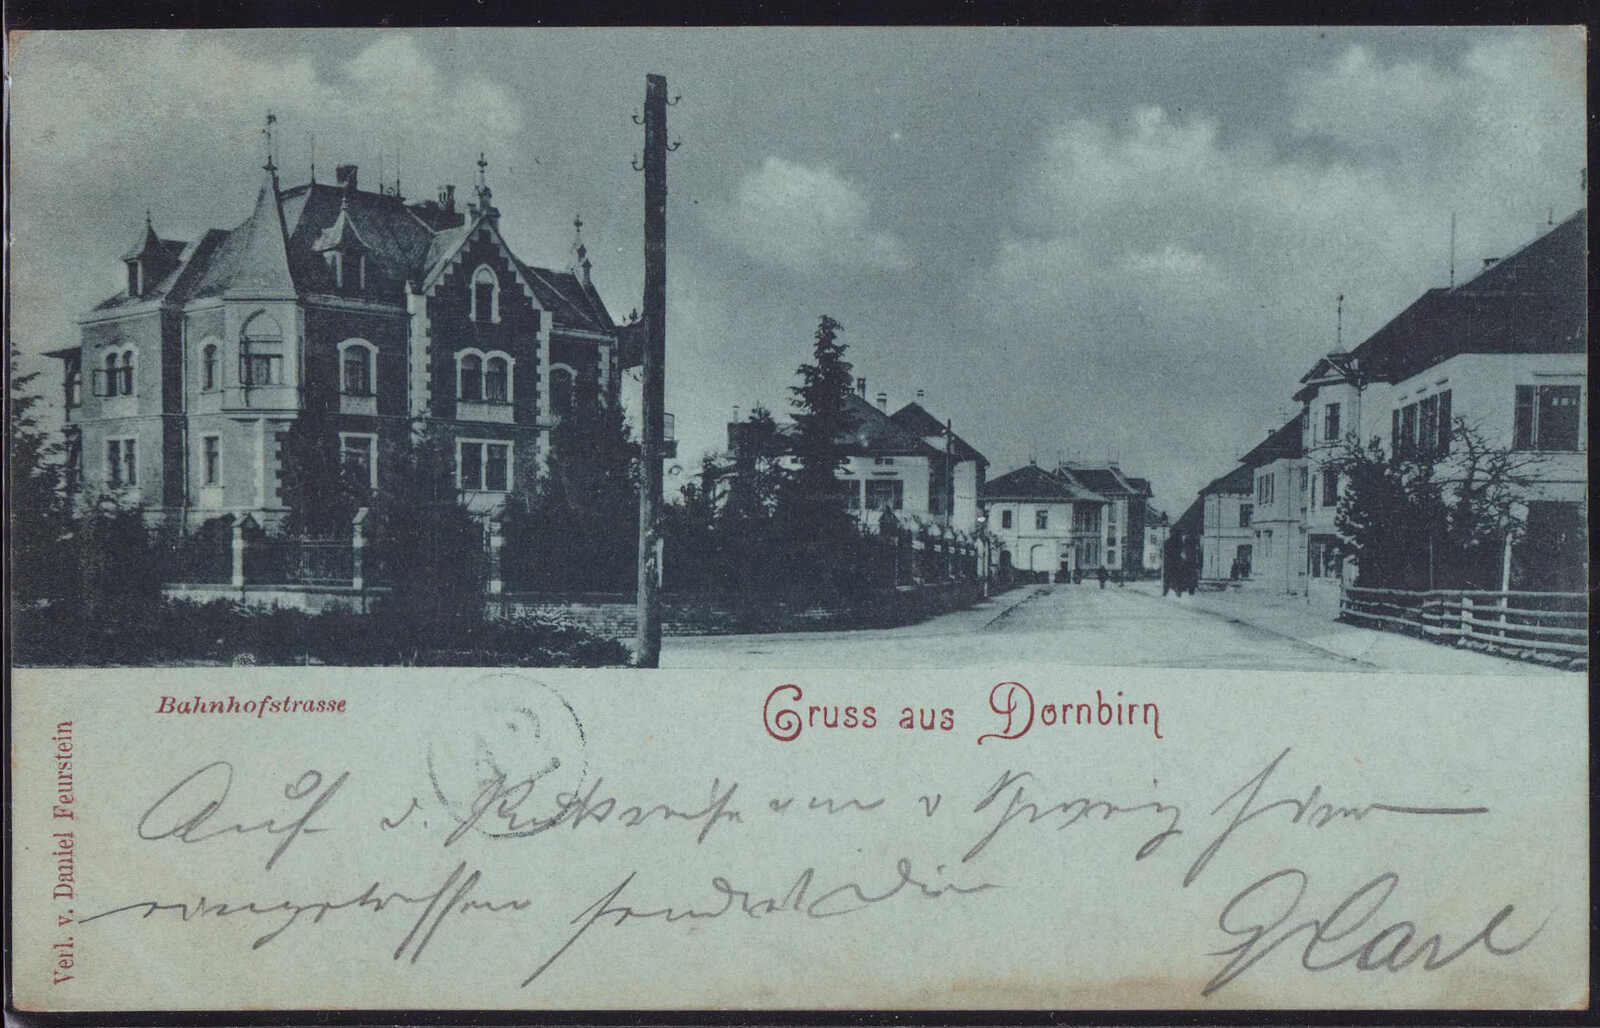 Bahnhofstrasse
Gruss aus Dornbirn
Verl. v. Daniel Feurstein
Auf d. Rückreise von d Schweiz hier
angetroffen sendet Dir
Carl